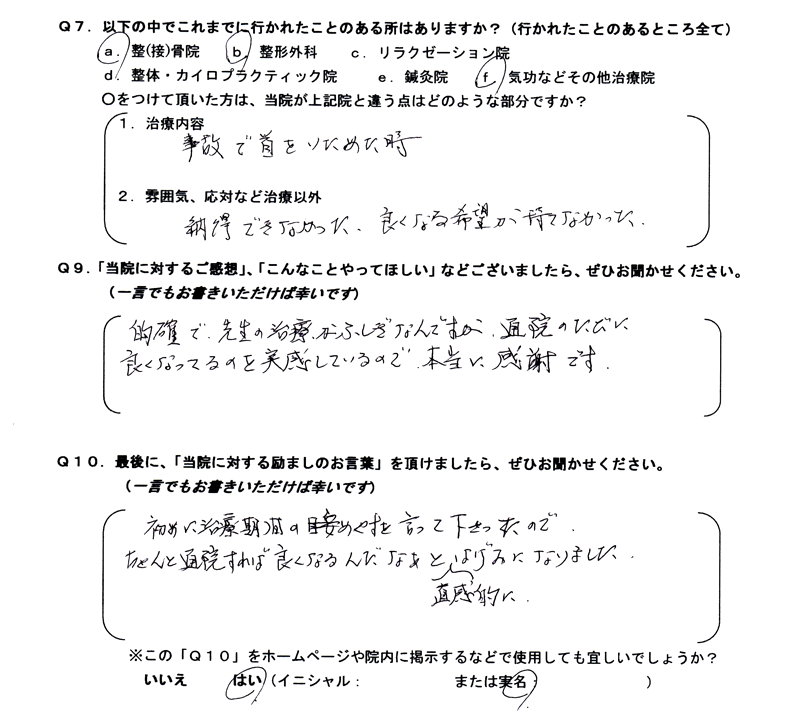 Q7. 以下の中でこれまでに行かれたことのある所はありますか?(行かれたことのあるところ全て)
a. 整(接)骨院 b. 整形外科 c. リラクゼーション院
d. 整体・カイロプラクティック院 e. 鍼灸院 f. 気功などその他治療院
○をつけて頂いた方は、当院が上記院と違う点はどのような部分ですか?
1. 治療内容
事故で首をいためた時
2. 雰囲気、応対など治療以外
納得できなかった、良くなる希望が持てなかった.
Q9.「当院に対するご感想」、「こんなことやってほしい」などございましたら、ぜひお聞かせください。
(一言でもお書きいただけば幸いです)
的確で、先生の治療がふしぎなんですが、通院のたびに
良くなってるのを実感しているので、本当に感謝です.
Q10. 最後に、「当院に対する励ましのお言葉」を頂けましたら、ぜひお聞かせください。
(一言でもお書きいただけば幸いです)
初めに治療期間の目安めやすを言って下さったので、
ちゃんと通院すれば良くなるんだなぁと、はげみになりました.
直感的に.
※この「Q10」をホームページや院内に掲示するなどで使用しても宜しいでしょうか?
いいえ はい(イニシャル: または実名: )